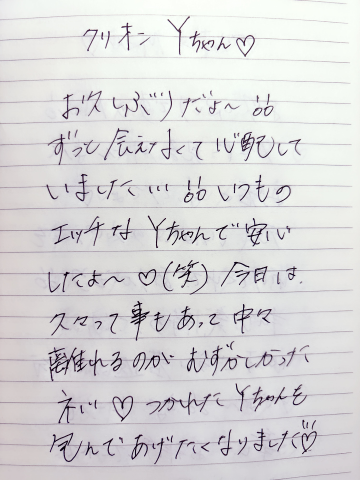 クリオン Yちゃん♡
お久しぶりだよ〜
ずっと会えなくて心配して
いました… いつもの
エッチな Yちゃんで安心
したよ〜♡(笑) 今日は
久々って事もあって中々
離れるのがむずかしかった
ネ♡ つかれたYちゃんを
包んであげたくなりました♡